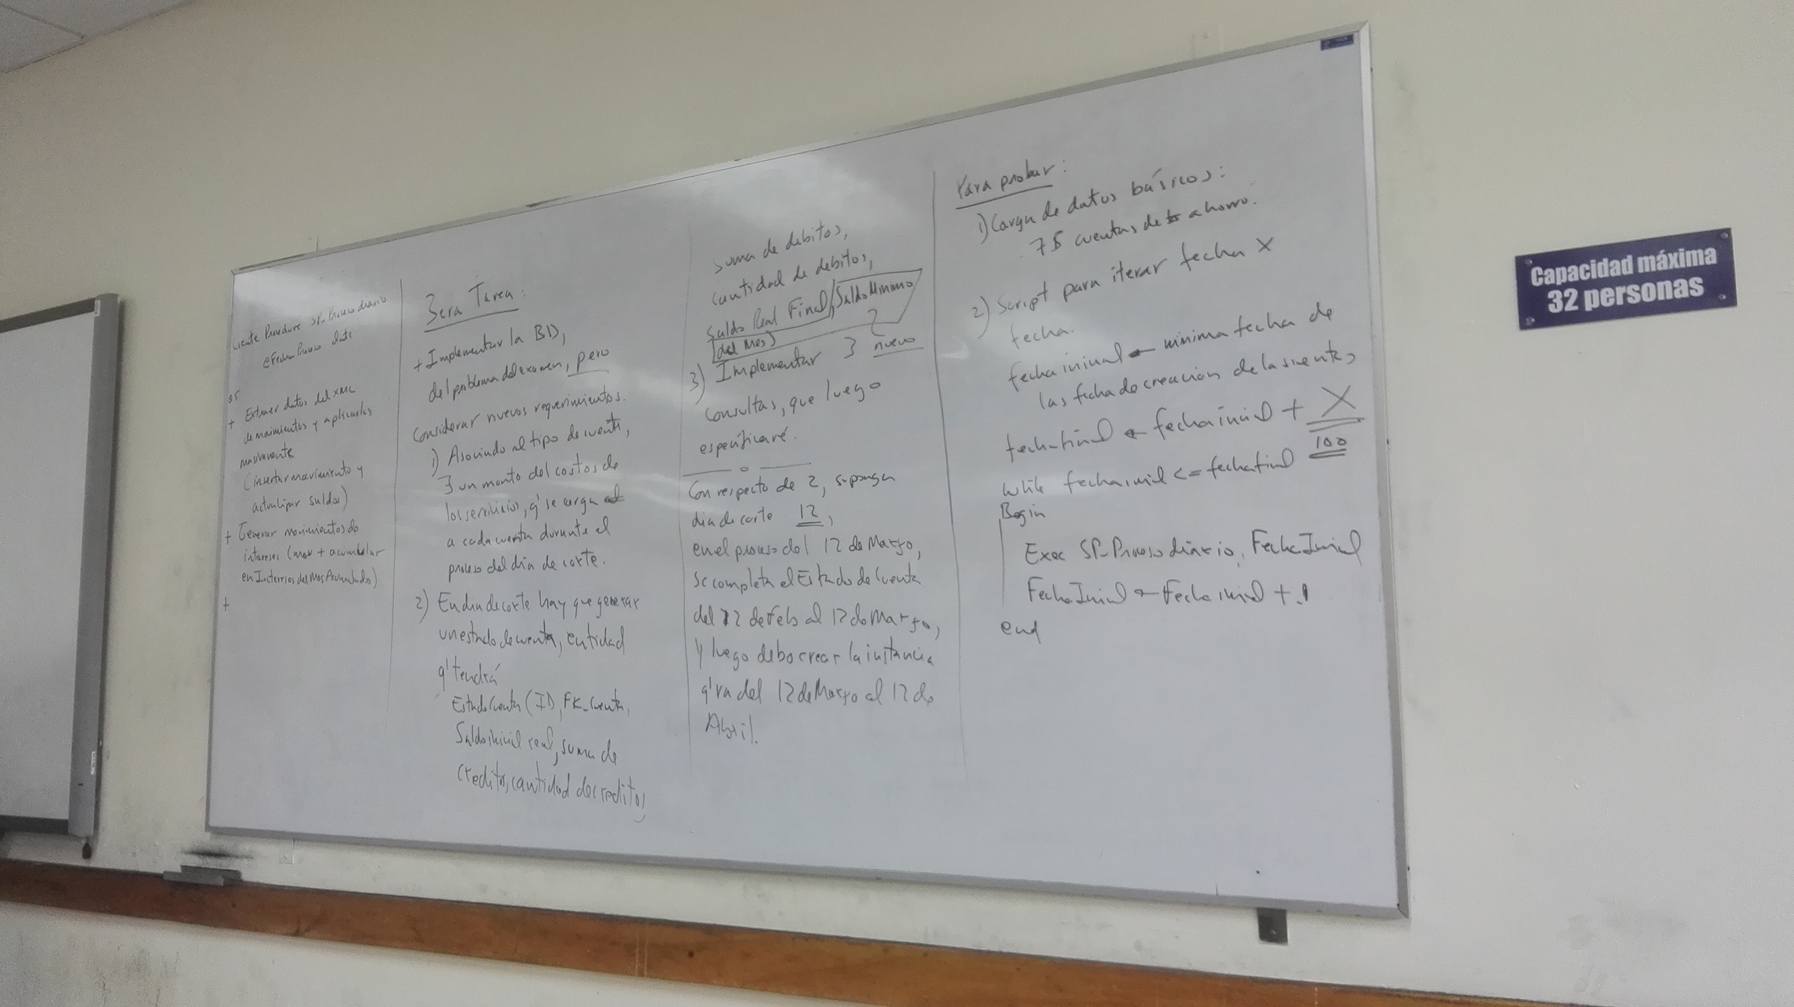 create Procedure SP_Proceso diario
@FechaProceso date
as
+ Extraer datos del XML
de movimientos y aplicarlos
masivamente
(insertar movimiento y
actualizar saldos)
+ Generar movimientos de
intereses (mov + acumular
en Intereses del Mes Acumulado)
+
3era Tarea:
+ Implementar la BD,
del problema del examen, pero
considerar nuevos requerimientos.
1) Asociado al tipo de cuenta,
∃ un monto del costos de
los servicios, q' se carga
a cada cuenta durante el
proceso del día de corte.
2) En día de corte hay que generar
un estado de cuenta, entidad
q' tendrá
EstadoCuenta (ID, FK_Cuenta,
SaldoInicial real, suma de
creditos, cantidad de creditos,
suma de debitos,
cantidad de debitos,
Saldo Real Final, Saldo Minimo
(del Mes)
3) Implementar 3 nuevo
consultas, que luego
especificaré.
Con respecto de 2, suponga
día de corte 12,
en el proceso del 12 de Marzo,
se completa el Estado de Cuenta
del 12 de Feb al 12 de Marzo,
y luego debo crear la instancia
q' va del 12 de Marzo al 12 de
Abril.
Para probar:
1) Carga de datos básicos:
75 cuentas de ahorro.
2) Script para iterar fecha x
fecha.
fechainicial ← minima fecha de
las fecha de creación de las cuentas
fechafinal ← fechainicial + X
100
While fechainicial <= fechafinal
Begin
Exec SP_Proceso diario, FechaInicial
FechaInicial ← Fechainicial + 1
end
Capacidad máxima
32 personas